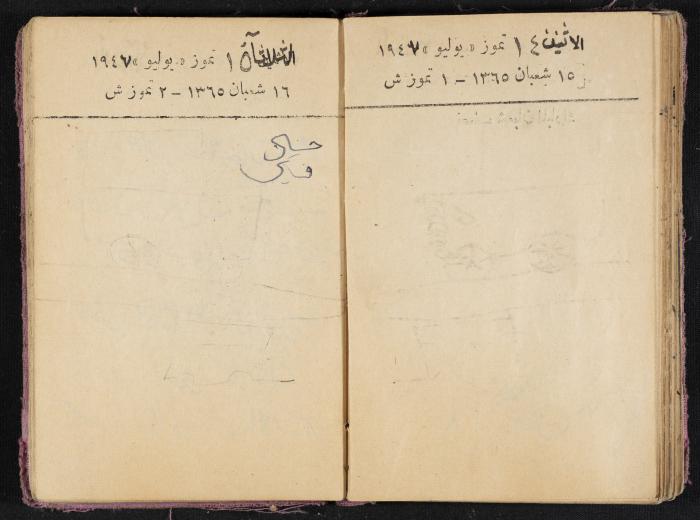 الاثنين ١٤ تموز « يوليو » ١٩٤٧
١٥ شعبان ١٣٦٥ – ١ تموز ش
الثلاثاء ١٥ تموز « يوليو » ١٩٤٧
١٦ شعبان ١٣٦٥ – ٢ تموز ش